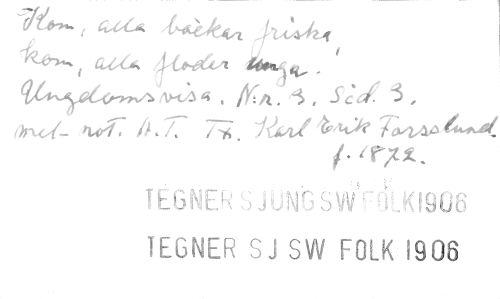 Kom, alla bäckar friska,
kom, alla floder unga.
Ungdomsvisa. N:r. 3. Sid. 3.
mel- not. A.T. Tx. Karl Erik Forsslund.
f. 1872.
TEGNER SJUNG SW FOLK 1906
TEGNER SJ SW FOLK 1906